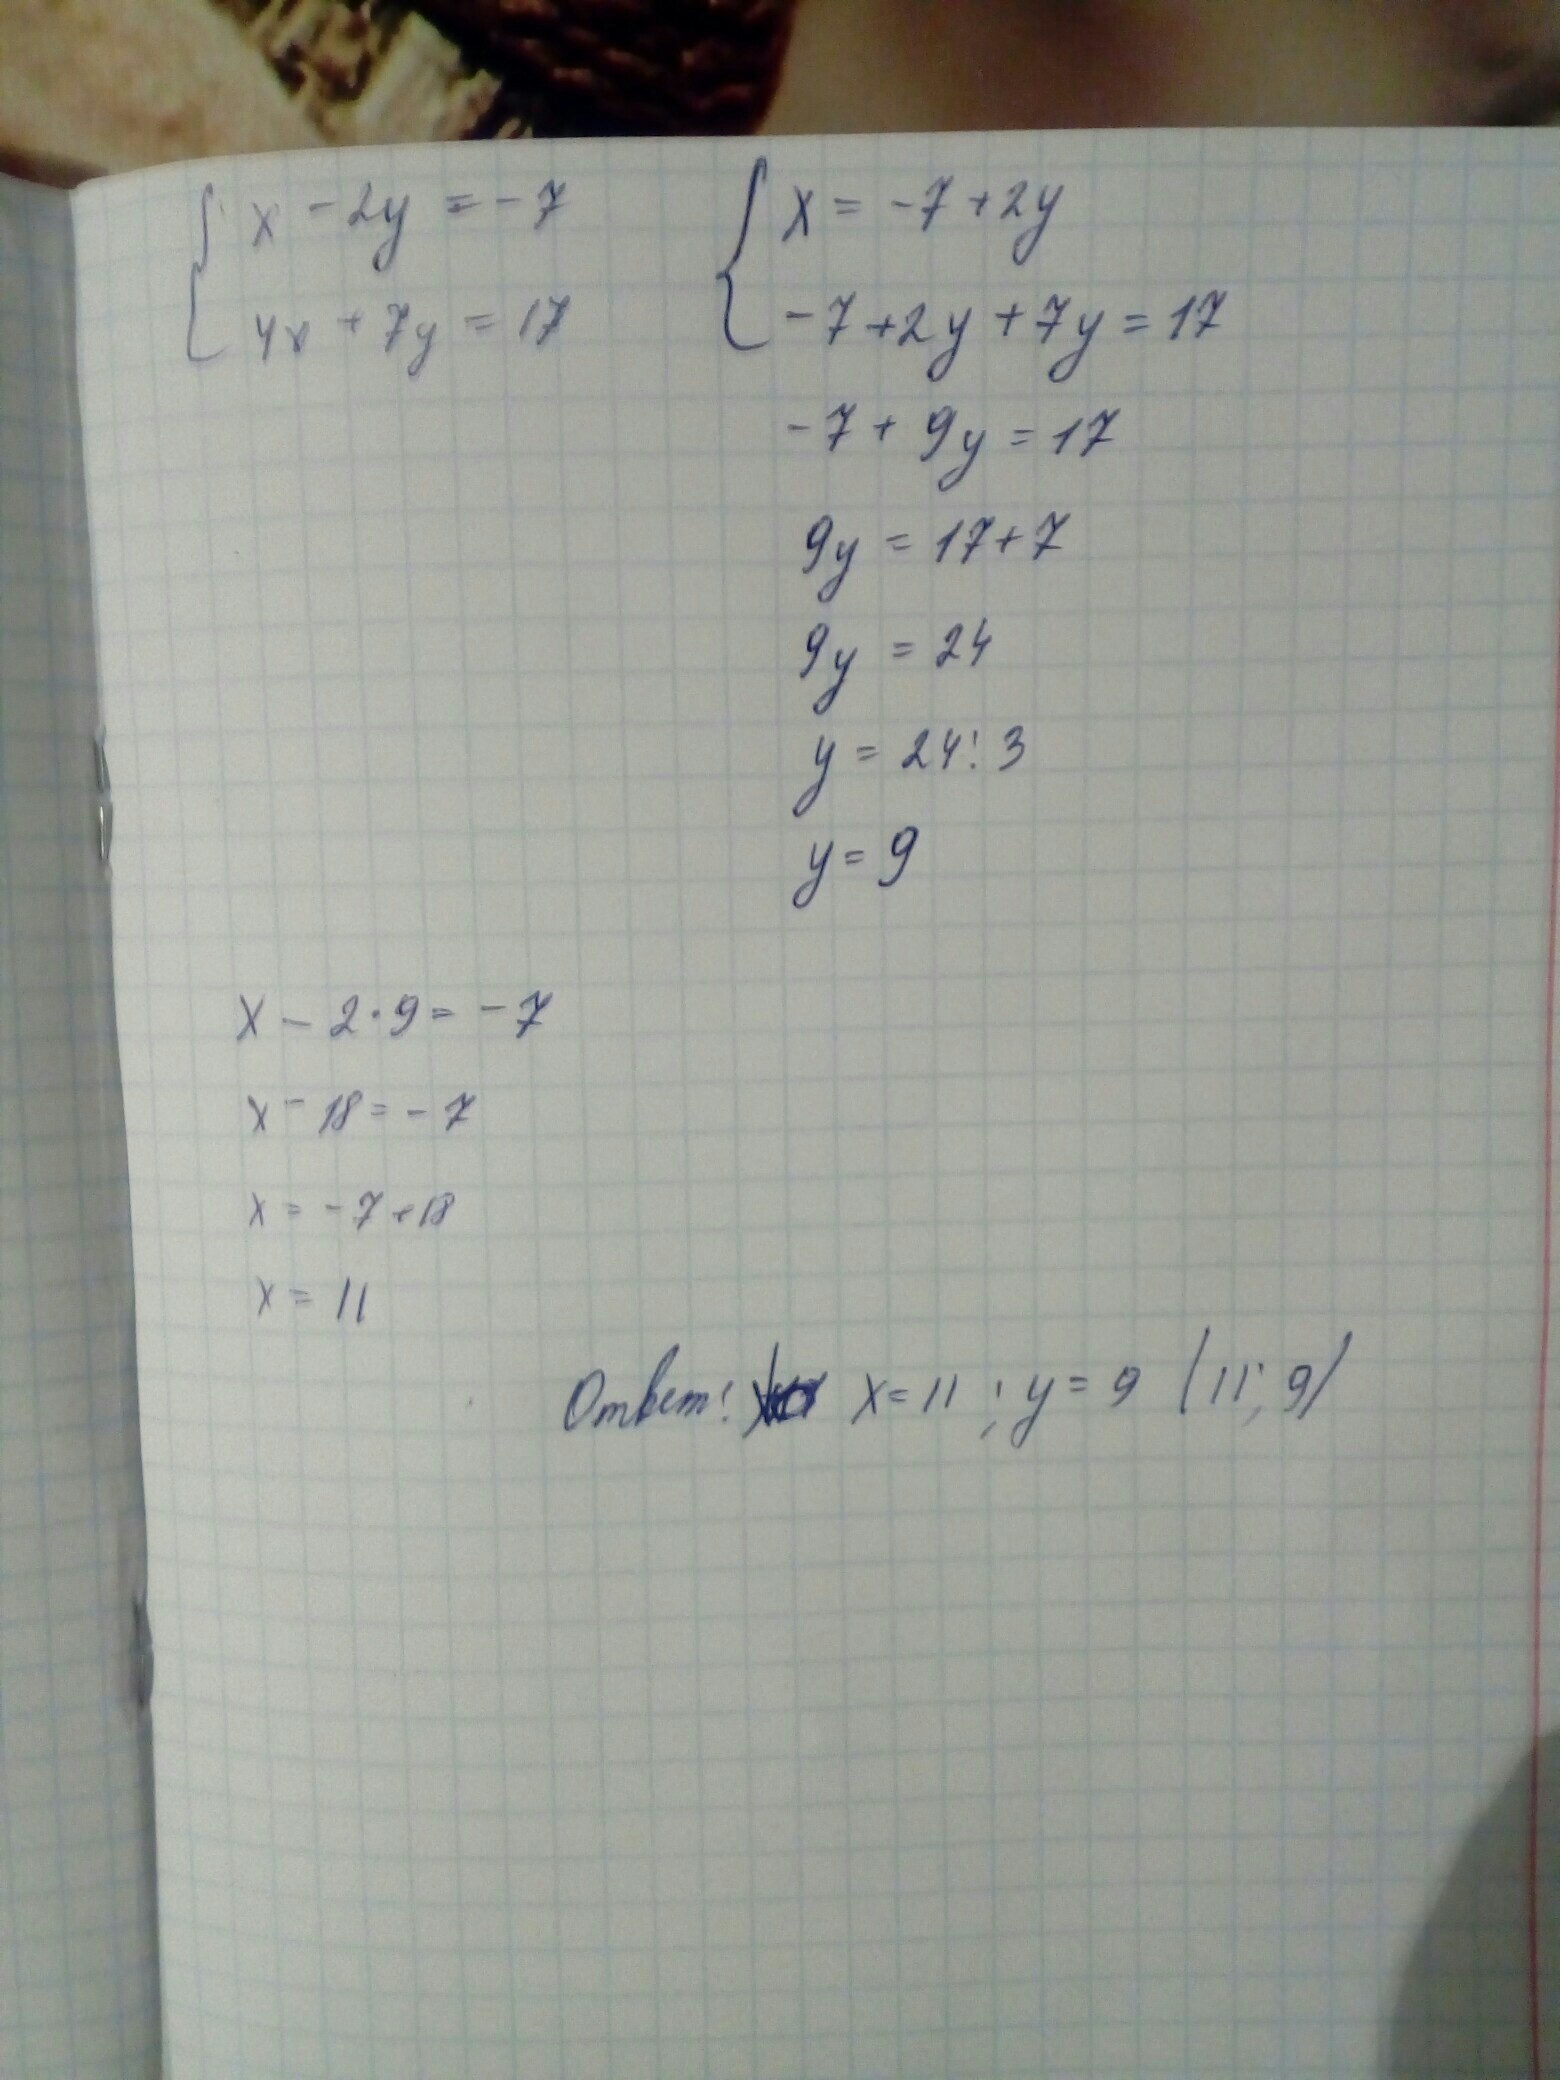 { x - 2y = -7
4x + 7y = 17
{ x = -7 + 2y
-7 + 2y + 7y = 17
-7 + 9y = 17
9y = 17 + 7
9y = 24
y = 24 : 3
y = 9
x - 2 · 9 = -7
x - 18 = -7
x = -7 + 18
x = 11
Ответ: x = 11 ; y = 9 (11; 9)